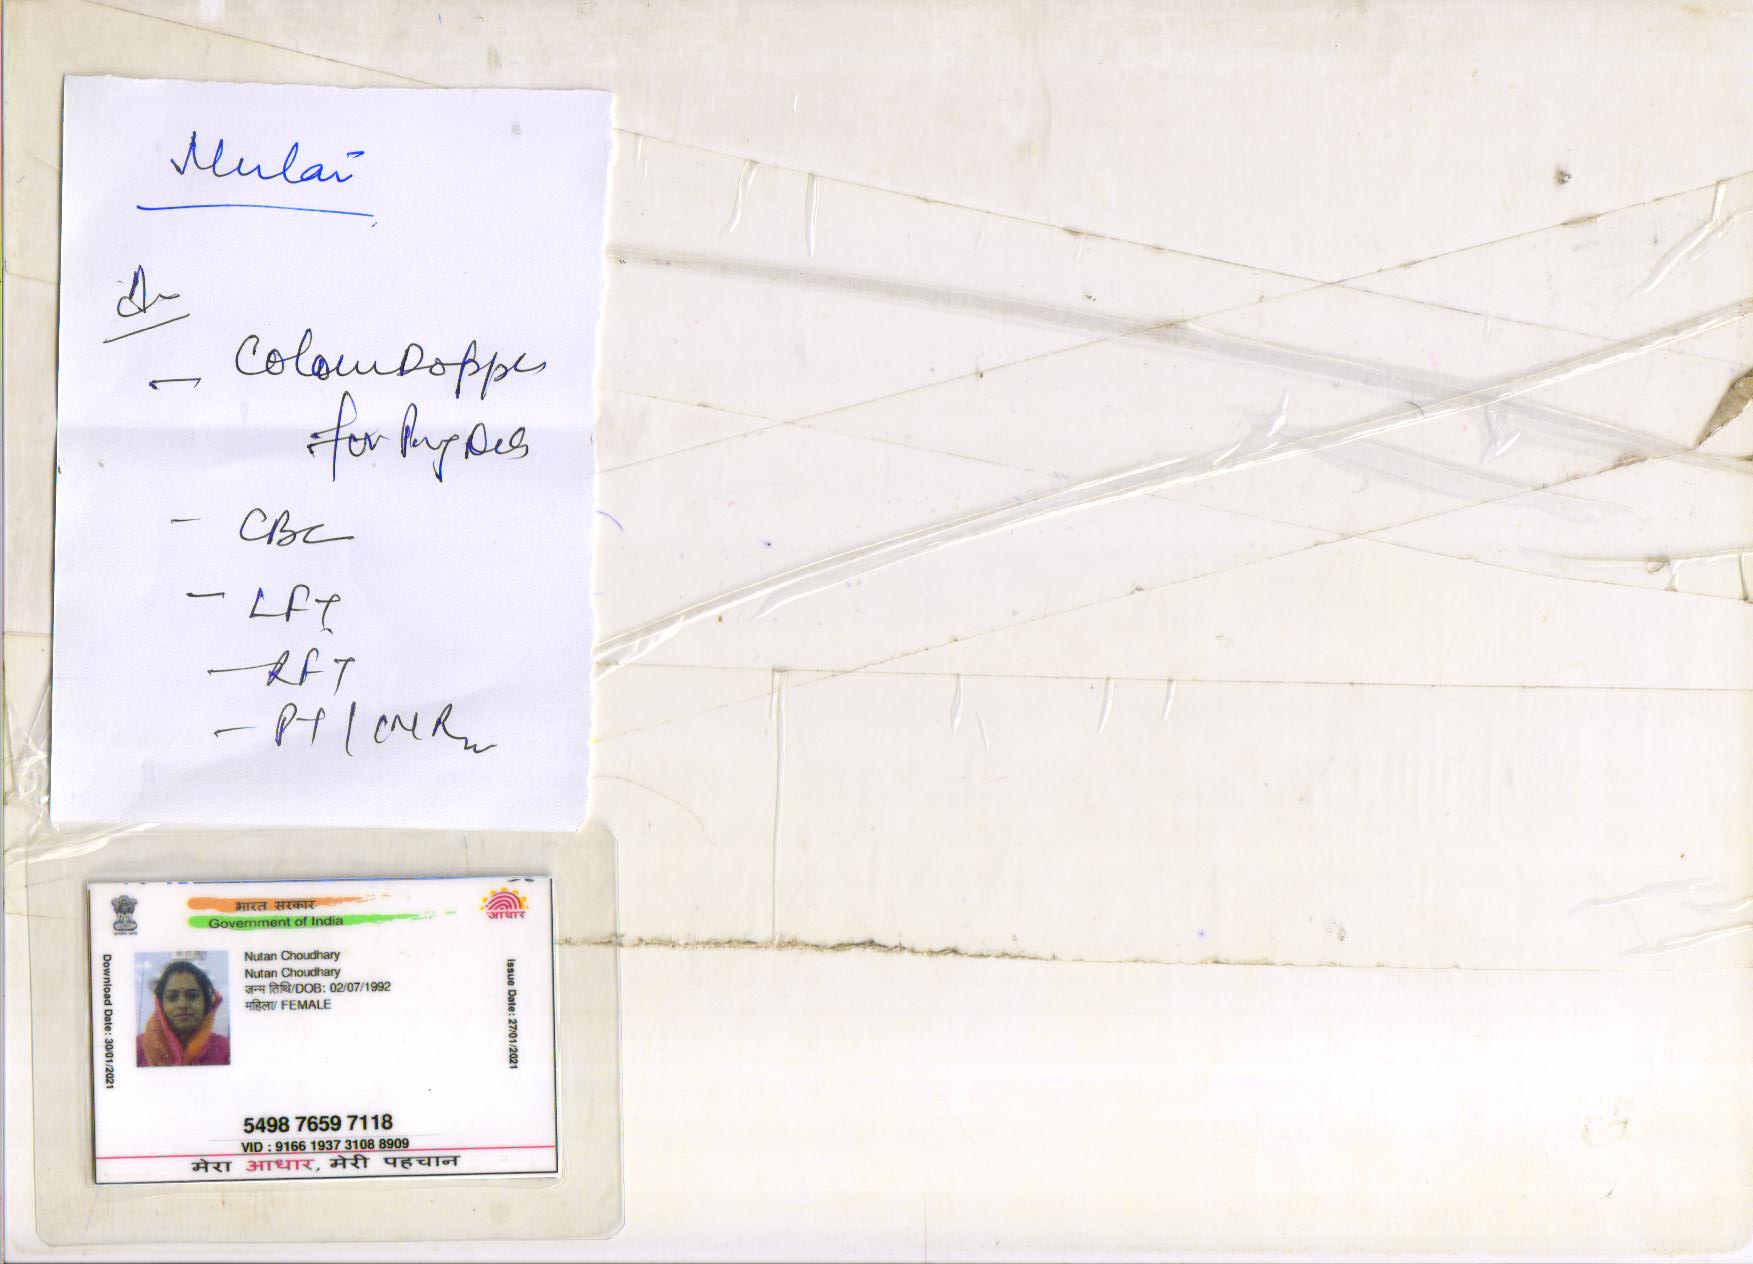 Colour Doppler
for
- CBC
- LFT
- RFT
- PT / INR
भारत सरकार
Government of India
आधार
Nutan Choudhary
Nutan Choudhary
जन्म तिथि/DOB: 02/07/1992
महिला/ FEMALE
Download Date: 30/01/2021
Issue Date: 27/01/2021
5498 7659 7118
VID : 9166 1937 3108 8909
मेरा आधार, मेरी पहचान